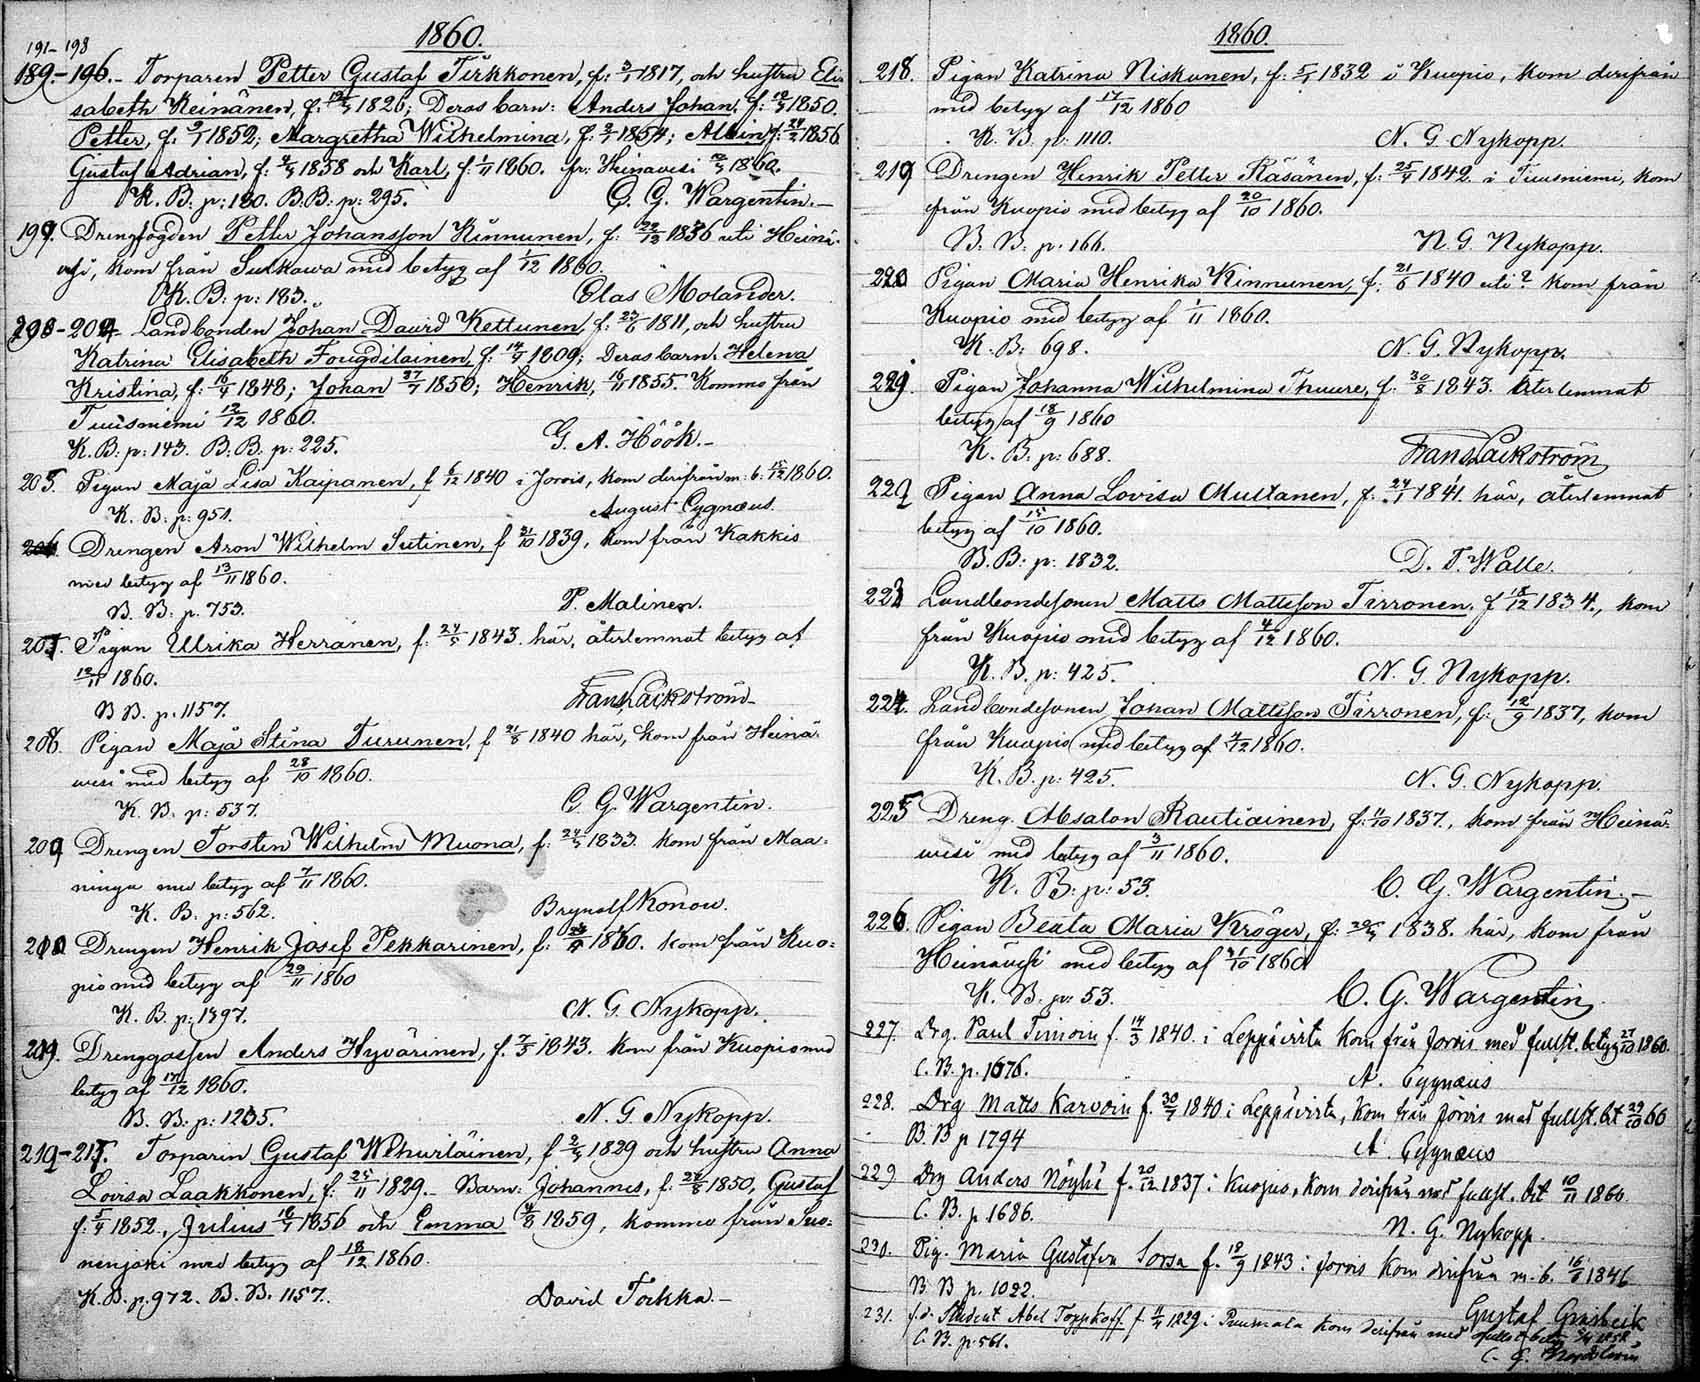 1860.
191-198
189.-196.- Torparen Petter Gustaf Tirkkonen, f: 3/1 1817, och hustru Eli
sabeth Keinänen, f: 1826; Deras barn: Anders Johan, f: 1850.
Petter, f: 1852; Margretha Wilhelmina, f: 1854; Albin f: 24/2 1856
Gustaf Adrian, f: 1858 och Karl, f: 1/11 1860. fr: Heinävesi 1860.
K. B: p: 180. B.B: p: 295. C. G. Wargentin.-
199. Drengfogden Petter Johansson Kinnunen, f: 22/12 1836 uti Heinä-
vesi, kom från Sulkawa med betyg af 1/12 1860.
K. B: p: 183. Elas Molander.
Landbonden Johan David Kettunen, f: 23/6 1811, och hustru
Katrina Elisabeth Fougdilainen, f: 14/9 1809; Deras barn: Helena
Kristina, f: 1848; Johan 1850; Henrik, 1855. Komma från
Tuusniemi 12/12 1860.
K. B: p: 143. B. B: p: 225. G. A. Höök.-
205. Pigan Maja Lisa Kaipanen, f 6/12 1840 i Jorois, kom derifrån m: b: 15/12 1860.
K. B: p: 951. August Cygnæus.
206 Drengen Aron Wilhelm Sutinen, f 31/10 1839, kom från Kakkis
med betyg af 13/11 1860.
B. B: p. 753. P. Malinen.
207. Pigan Ulrika Herranen, f: 1843. här, återlemnat betyg af
12/11 1860.
B B. p. 1157. Frans Lackström
208. Pigan Maja Stina Turunen, f 21/8 1840 här, kom från Heinä-
wesi med betyg af 28/10 1860.
K. B: p: 537. C. G. Wargentin.
209 Drengen Torsten Wilhelm Muona, f: 1833. kom från Maa-
ninga med betyg af 7/11 1860.
K. B: p: 562. Brynolf Konow.
210 Drengen Henrik Josef Pekkarinen, f: kom från Kuo-
pio med betyg af 29/11 1860
K. B. p: 1397. N. G. Nykopp.
211. Drenggossen Anders Hyvärinen, f. 1843. kom från Kuopio med
betyg af 1860.
B. B: p: 1235. N. G. Nykopp.
212-217. Torparen Gustaf Wihurläinen, f 1829 och hustru Anna
Lovisa Laakkonen, f: 25/11 1829.- Barn: Johannes, f: 1850, Gustaf
f. 5/4 1852., Julius 1856 och Emma 4/8 1859, komma från Suo-
nenjoki med betyg af 18/12 1860.
K. B. p. 972. B. B. 1157. David Tockka.-
1860.
218. Pigan Katrina Niskanen, f: 1832 i Kuopio, kom derifrån
med betyg af 17/12 1860
K. B. p: 1110. N. G. Nykopp.
219 Drengen Henrik Petter Räsänen, f: 1842 i Tuusniemi, kom
från Kuopio med betyg af 20/10 1860.
B. B: p. 166. N. G. Nykopp.
220 Pigan Maria Henrika Kinnunen, f: 21/6 1840 uti? kom från
Kuopio med betyg af 1/11 1860.
K. B: 698. N. G. Nykopp.
221. Pigan Johanna Wilhelmina Thuure, f. 30/8 1843. Återlemnat
betyg af 18/9 1860
K. B: p: 688. Frans Lackström
222 Pigan Anna Lovisa Multanen, f: 24/1 1841. här, återlemnat
betyg af 15/10 1860.
B. B: p: 1832. D. T. Walle.
223 Landbondesonen Matts Mattsson Tirronen, f 18/12 1834., kom
från Kuopio med betyg af 4/12 1860.
K. B. p: 425. N. G. Nykopp.
224. Landbondesonen Johan Mattsson Tirronen, f: 12/9 1837, kom
från Kuopio med betyg af 4/12 1860.
K. B. p: 425. N. G. Nykopp.
225 Dreng. Absalon Rautiainen, f: 1837., kom från Heinä-
wesi med betyg af 3/11 1860.
K. B: p: 53. C. G. Wargentin.-
226. Pigan Beata Maria Kröger, f: 1838. här, kom från
Heinävesi med betyg af 21/10 1860
K. B. p: 53. C. G. Wargentin.
227. Drg. Paul Timoin f. 14/3 1840. i Leppävirta kom från Jorois med fullst. betyg 27/10 1860.
C. B. p. 1676. A. Cygnæus
228. Drg Matts Karvoin f. 1840 i Leppävirta, kom från Jorois med fullst. bt 29/10 60
B B p 1794 A. Cygnæus
229 Drg Anders Nöyhi f. 20/12 1837 i Kuopio, kom derifrån med fullst. bt 10/11 1860
C. B. p. 1686. N. G. Nykopp.
230. Pig. Maria Gustafva Sorsa f. 18/9 1843 i Jorois kom derifrån m. b. 1846
B B p. 1022. Gustaf
231. f.d. Student Abel Toppkoff f. 1829 i Puumala kom derifrån med
C. B. p. 561.